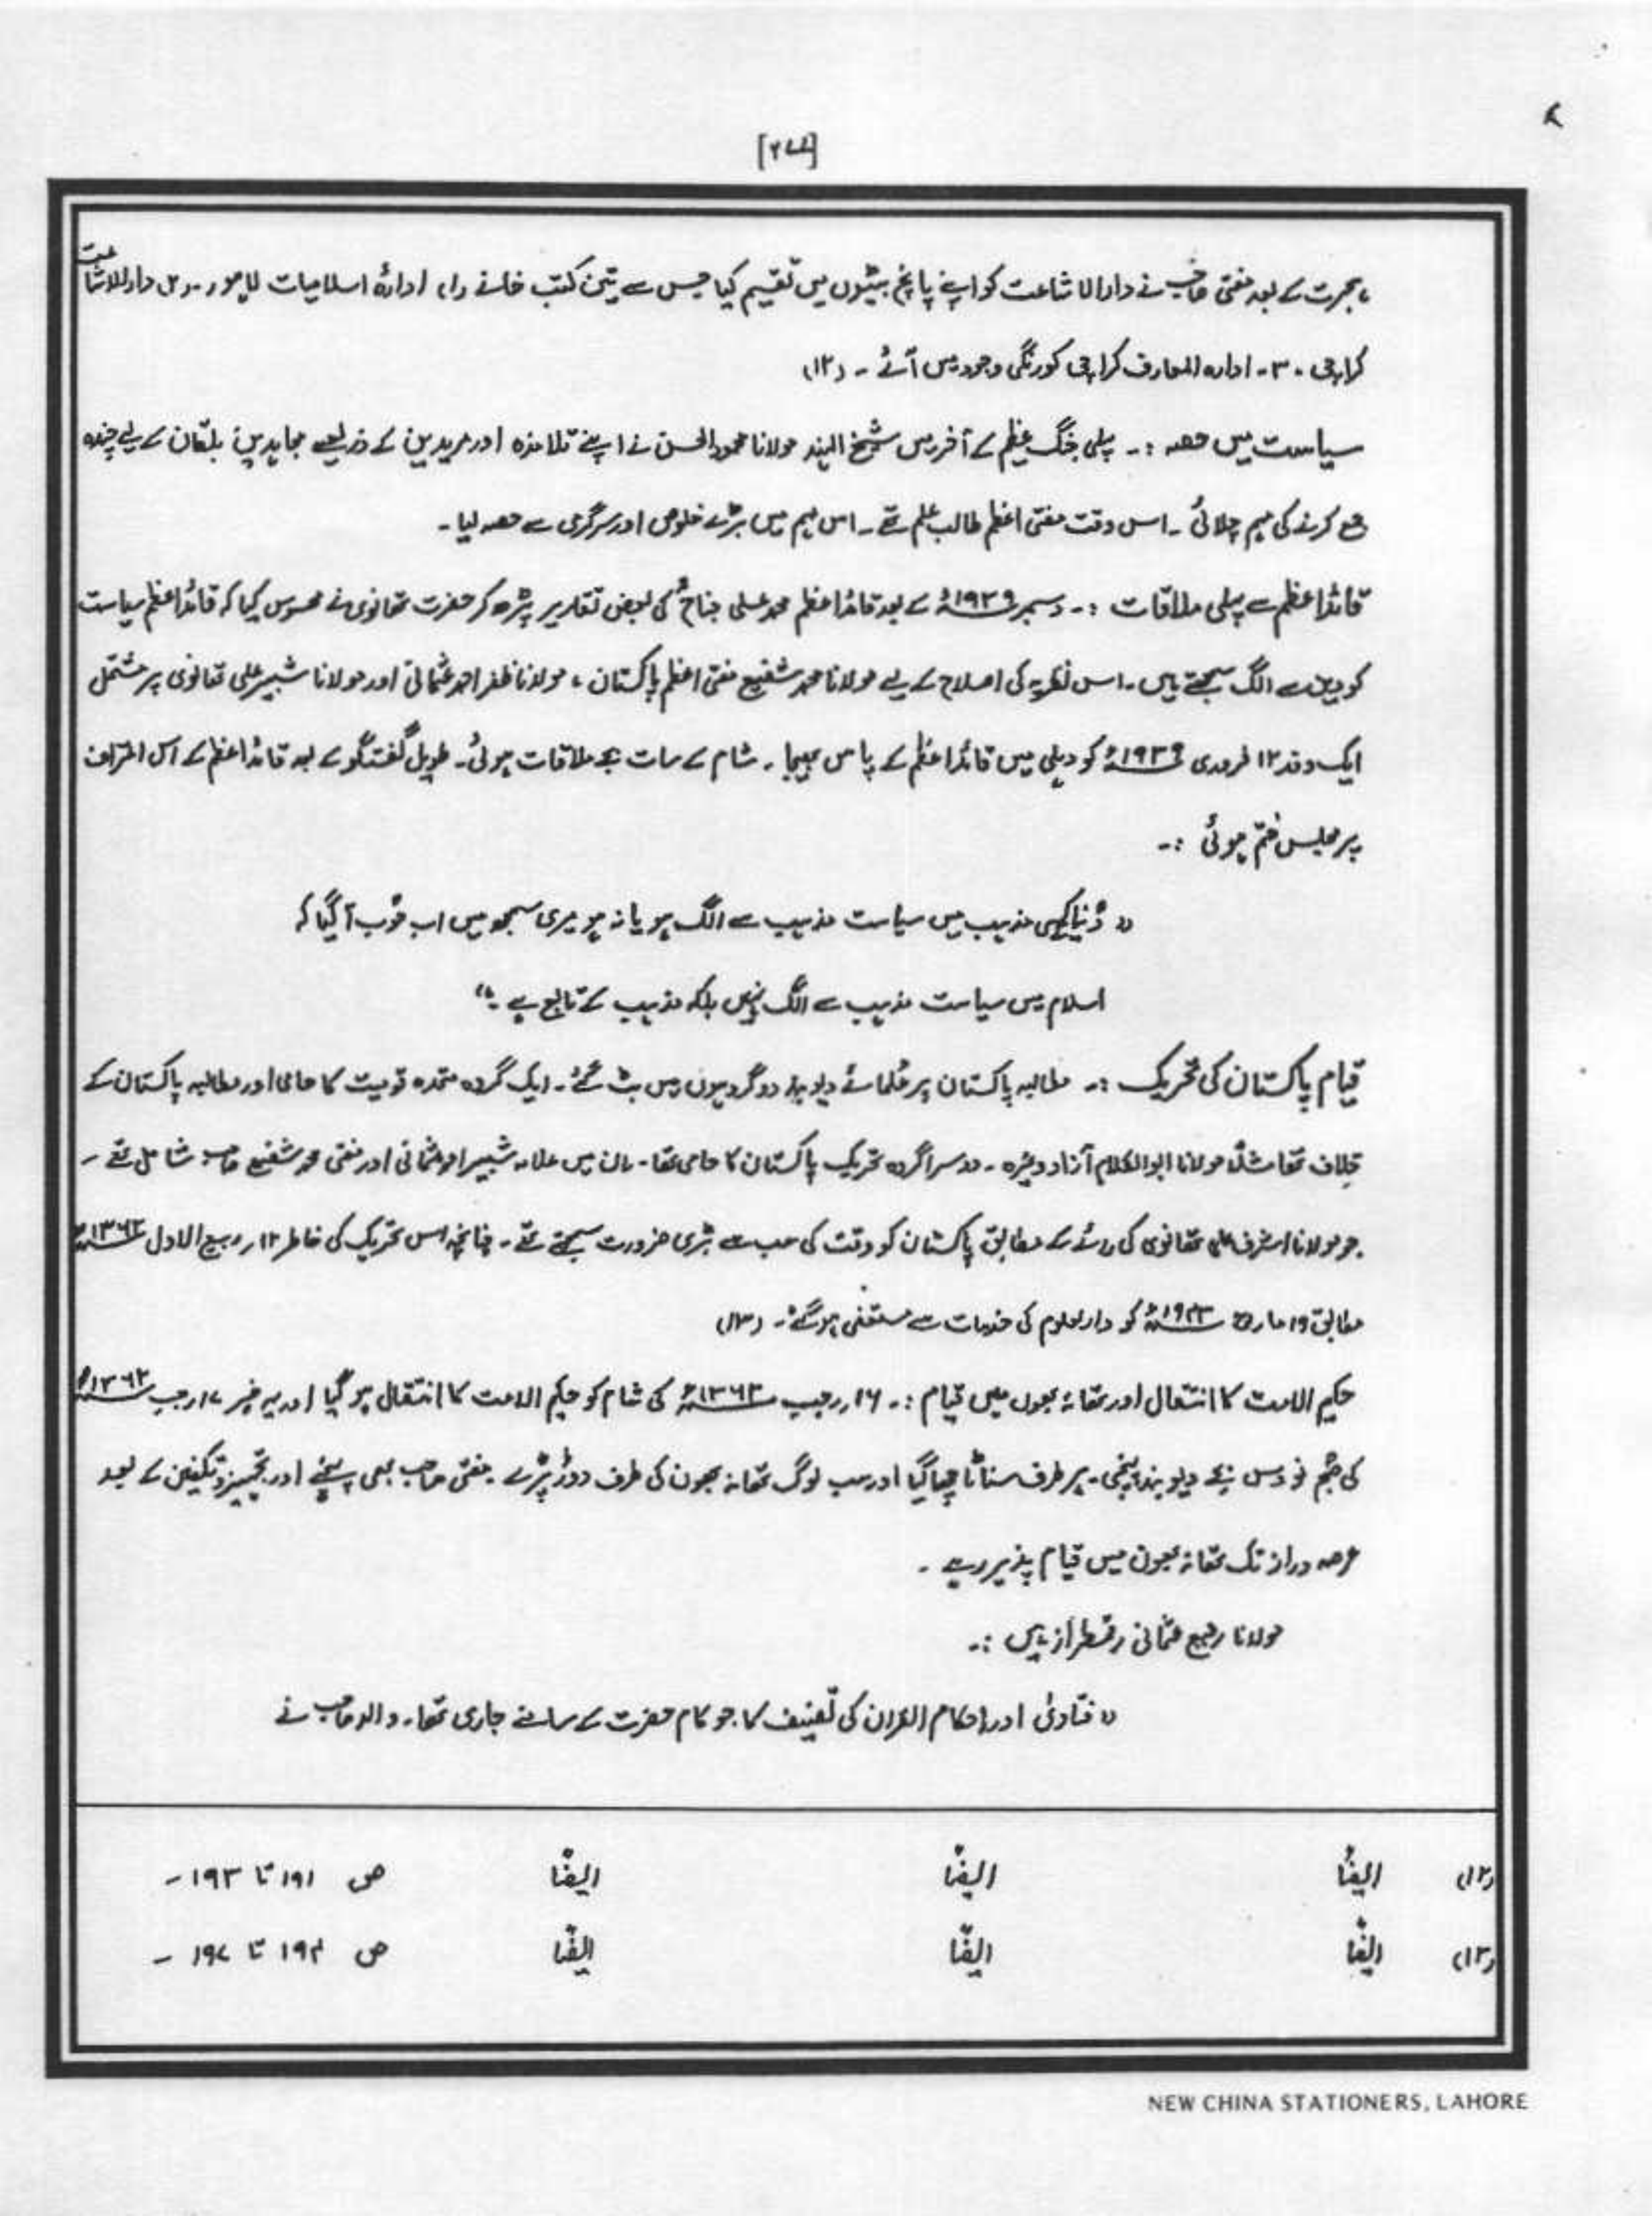 [۲۷۷]
ہجرت کے بعد مفتی صاحب نے دارالاشاعت کو اپنے پانچ بیٹوں میں تقسیم کیا جس سے تین کتب خانے (۱) ادارۂ اسلامیات لاہور ۔ ۲۔ دارالاشاعت
کراچی ۔ ۳۔ ادارہ المعارف کراچی کورنگی وجود میں آئے ۔ (۱۲)
سیاست میں حصہ :۔ پہلی جنگ عظیم کے آخر میں شیخ الہند مولانا محمود الحسن نے اپنے تلامذہ اور مریدین کے ذریعے مجاہدین بلقان کے لیے چندہ
جمع کرنے کی مہم چلائی ۔ اس وقت مفتی اعظم طالب علم تھے ۔ اس مہم میں بڑے خلوص اور سرگرمی سے حصہ لیا ۔
قائداعظم سے پہلی ملاقات :۔ دسمبر ۱۹۳۹ء کے بعد قائداعظم محمد علی جناحؒ کی بعض تقاریر پڑھ کر حضرت تھانوی نے محسوس کیا کہ قائداعظم سیاست
کو دین سے الگ سمجھتے ہیں ۔ اس نظریہ کی اصلاح کے لیے مولانا محمد شفیع مفتی اعظم پاکستان ، مولانا ظفر احمد عثمانی اور مولانا شبیر علی تھانوی پر مشتمل
ایک وفد ۱۲ فروری ۱۹۳۹ء کو دہلی میں قائداعظم کے پاس بھیجا ۔ شام کے سات بجے ملاقات ہوئی ۔ طویل گفتگو کے بعد قائداعظم کے اس اعتراف
پر مجلس ختم ہوئی :۔
" دُنیا کے کسی مذہب میں سیاست مذہب سے الگ ہو یا نہ ہو میری سمجھ میں اب خُوب آ گیا کہ
اسلام میں سیاست مذہب سے الگ نہیں بلکہ مذہب کے تابع ہے ۔"
قیام پاکستان کی تحریک :۔ مطالبہ پاکستان پر علمائے دیوبند دو گروہوں میں بٹ گئے ۔ ایک گروہ متحدہ قومیت کا حامی اور مطالبہ پاکستان کے
خلاف تھا مثلاً مولانا ابوالکلام آزاد وغیرہ ۔ دوسرا گروہ تحریک پاکستان کا حامی تھا ۔ ان میں علامہ شبیر احمد عثمانی اور مفتی محمد شفیع صاحب شامل تھے ۔
جو مولانا اشرف علی تھانوی کی رائے کے مطابق پاکستان کو وقت کی سب سے بڑی ضرورت سمجھتے تھے ۔ چنانچہ اس تحریک کی خاطر ۱۲ ربیع الاول ۱۳۶۲ھ
مطابق ۱۹ مارچ ۱۹۴۳ء کو دارالعلوم کی خدمات سے مستعفی ہو گئے ۔ (۱۳)
حکیم الامت کا انتقال اور تھانہ بھون میں قیام :۔ ۱۶ رجب ۱۳۶۲ھ کی شام کو حکیم الامت کا انتقال ہو گیا اور یہ خبر ۱۷ رجب ۱۳۶۲ھ
کی صبح نو دس بجے دیوبند پہنچی ۔ ہر طرف سناٹا چھا گیا اور سب لوگ تھانہ بھون کی طرف دوڑ پڑے ۔ مفتی صاحب بھی پہنچے اور تجہیز و تکفین کے بعد
عرصہ دراز تک تھانہ بھون میں قیام پذیر رہے ۔
مولانا رفیع عثمانی رقمطراز ہیں :۔
" فتاویٰ اور احکام القرآن کی تصنیف کا جو کام حضرت کے سامنے جاری تھا ۔ والد صاحب نے
(۱۲) ایضاً ایضاً ایضاً ص ۱۹۱ تا ۱۹۳ ۔
(۱۳) ایضاً ایضاً ایضاً ص ۱۹۴ تا ۱۹۷ ۔
NEW CHINA STATIONERS, LAHORE